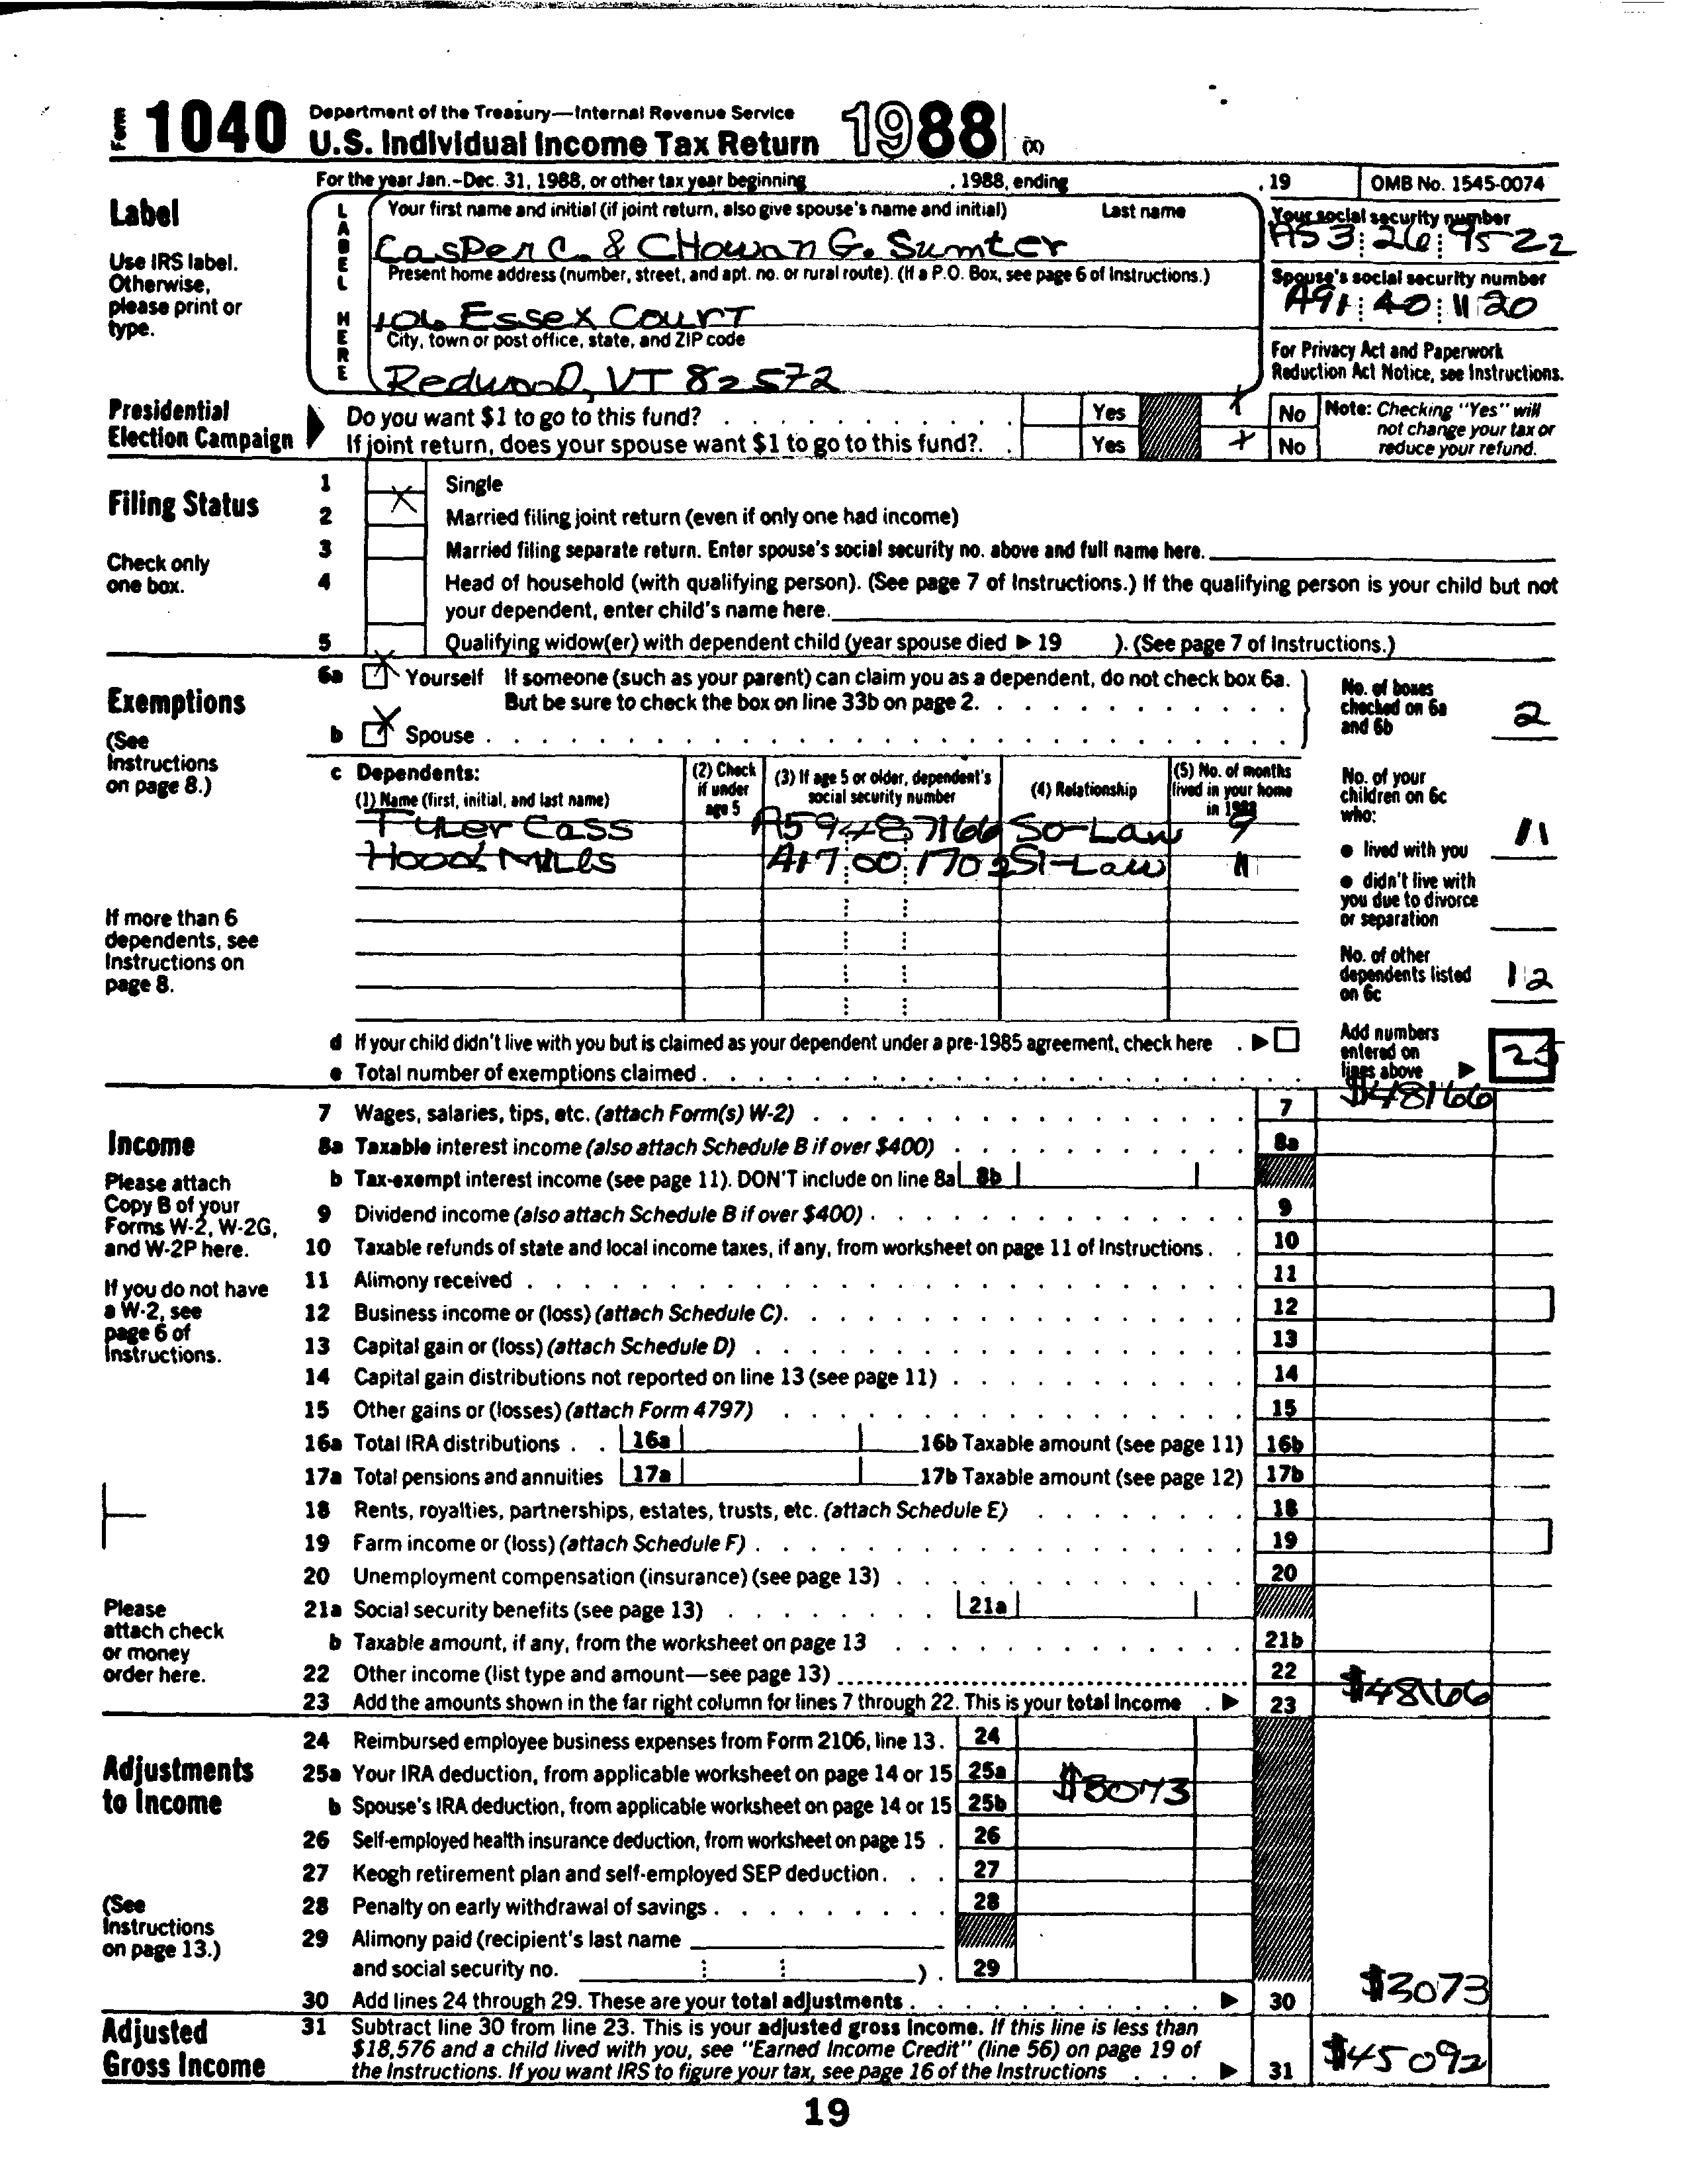 Form 1040 Department of the Treasury—Internal Revenue Service
U.S. Individual Income Tax Return 1988 (X)
For the year Jan.–Dec. 31, 1988, or other tax year beginning , 1988, ending , 19 OMB No. 1545-0074
Label
Use IRS label. Otherwise, please print or type.
LABEL HERE
Your first name and initial (if joint return, also give spouse's name and initial) Last name
Casper C. & CHowan G. Sumter
Your social security number
A53 26 9522
Present home address (number, street, and apt. no. or rural route). (If a P.O. Box, see page 6 of Instructions.)
106 Essex Court
Spouse's social security number
A91 40 1120
City, town or post office, state, and ZIP code
Redwood, VT 82572
For Privacy Act and Paperwork Reduction Act Notice, see Instructions.
Presidential Election Campaign
Do you want $1 to go to this fund? Yes X No
If joint return, does your spouse want $1 to go to this fund? Yes X No
Note: Checking "Yes" will not change your tax or reduce your refund.
Filing Status
Check only one box.
1 Single
2 X Married filing joint return (even if only one had income)
3 Married filing separate return. Enter spouse's social security no. above and full name here.
4 Head of household (with qualifying person). (See page 7 of Instructions.) If the qualifying person is your child but not
your dependent, enter child's name here.
5 Qualifying widow(er) with dependent child (year spouse died ▶ 19 ). (See page 7 of Instructions.)
Exemptions
(See Instructions on page 8.)
6a X Yourself If someone (such as your parent) can claim you as a dependent, do not check box 6a.
But be sure to check the box on line 33b on page 2.
b X Spouse
No. of boxes checked on 6a and 6b 2
c Dependents:
(1) Name (first, initial, and last name)
(2) Check if under age 5
(3) If age 5 or older, dependent's social security number
(4) Relationship
(5) No. of months lived in your home in 1988
Tyler Cass A59487166 So-Law 9
Hood Mills A17 00 1702 SI-Law 11
No. of your children on 6c who:
● lived with you 11
● didn't live with you due to divorce or separation
No. of other dependents listed on 6c 12
If more than 6 dependents, see Instructions on page 8.
d If your child didn't live with you but is claimed as your dependent under a pre-1985 agreement, check here ▶
e Total number of exemptions claimed
Add numbers entered on lines above ▶ 25
Income
Please attach Copy B of your Forms W-2, W-2G, and W-2P here.
If you do not have a W-2, see page 6 of Instructions.
Please attach check or money order here.
7 Wages, salaries, tips, etc. (attach Form(s) W-2) 7 $48166
8a Taxable interest income (also attach Schedule B if over $400) 8a
b Tax-exempt interest income (see page 11). DON'T include on line 8a 8b
9 Dividend income (also attach Schedule B if over $400) 9
10 Taxable refunds of state and local income taxes, if any, from worksheet on page 11 of Instructions 10
11 Alimony received 11
12 Business income or (loss) (attach Schedule C) 12
13 Capital gain or (loss) (attach Schedule D) 13
14 Capital gain distributions not reported on line 13 (see page 11) 14
15 Other gains or (losses) (attach Form 4797) 15
16a Total IRA distributions 16a 16b Taxable amount (see page 11) 16b
17a Total pensions and annuities 17a 17b Taxable amount (see page 12) 17b
18 Rents, royalties, partnerships, estates, trusts, etc. (attach Schedule E) 18
19 Farm income or (loss) (attach Schedule F) 19
20 Unemployment compensation (insurance) (see page 13) 20
21a Social security benefits (see page 13) 21a
b Taxable amount, if any, from the worksheet on page 13 21b
22 Other income (list type and amount—see page 13) 22
23 Add the amounts shown in the far right column for lines 7 through 22. This is your total income ▶ 23 $48166
Adjustments to Income
(See Instructions on page 13.)
24 Reimbursed employee business expenses from Form 2106, line 13 24
25a Your IRA deduction, from applicable worksheet on page 14 or 15 25a
b Spouse's IRA deduction, from applicable worksheet on page 14 or 15 25b $3073
26 Self-employed health insurance deduction, from worksheet on page 15 26
27 Keogh retirement plan and self-employed SEP deduction 27
28 Penalty on early withdrawal of savings 28
29 Alimony paid (recipient's last name
and social security no. ) 29
30 Add lines 24 through 29. These are your total adjustments ▶ 30 $3073
Adjusted Gross Income
31 Subtract line 30 from line 23. This is your adjusted gross income. If this line is less than
$18,576 and a child lived with you, see "Earned Income Credit" (line 56) on page 19 of
the Instructions. If you want IRS to figure your tax, see page 16 of the Instructions ▶ 31 $45092
19